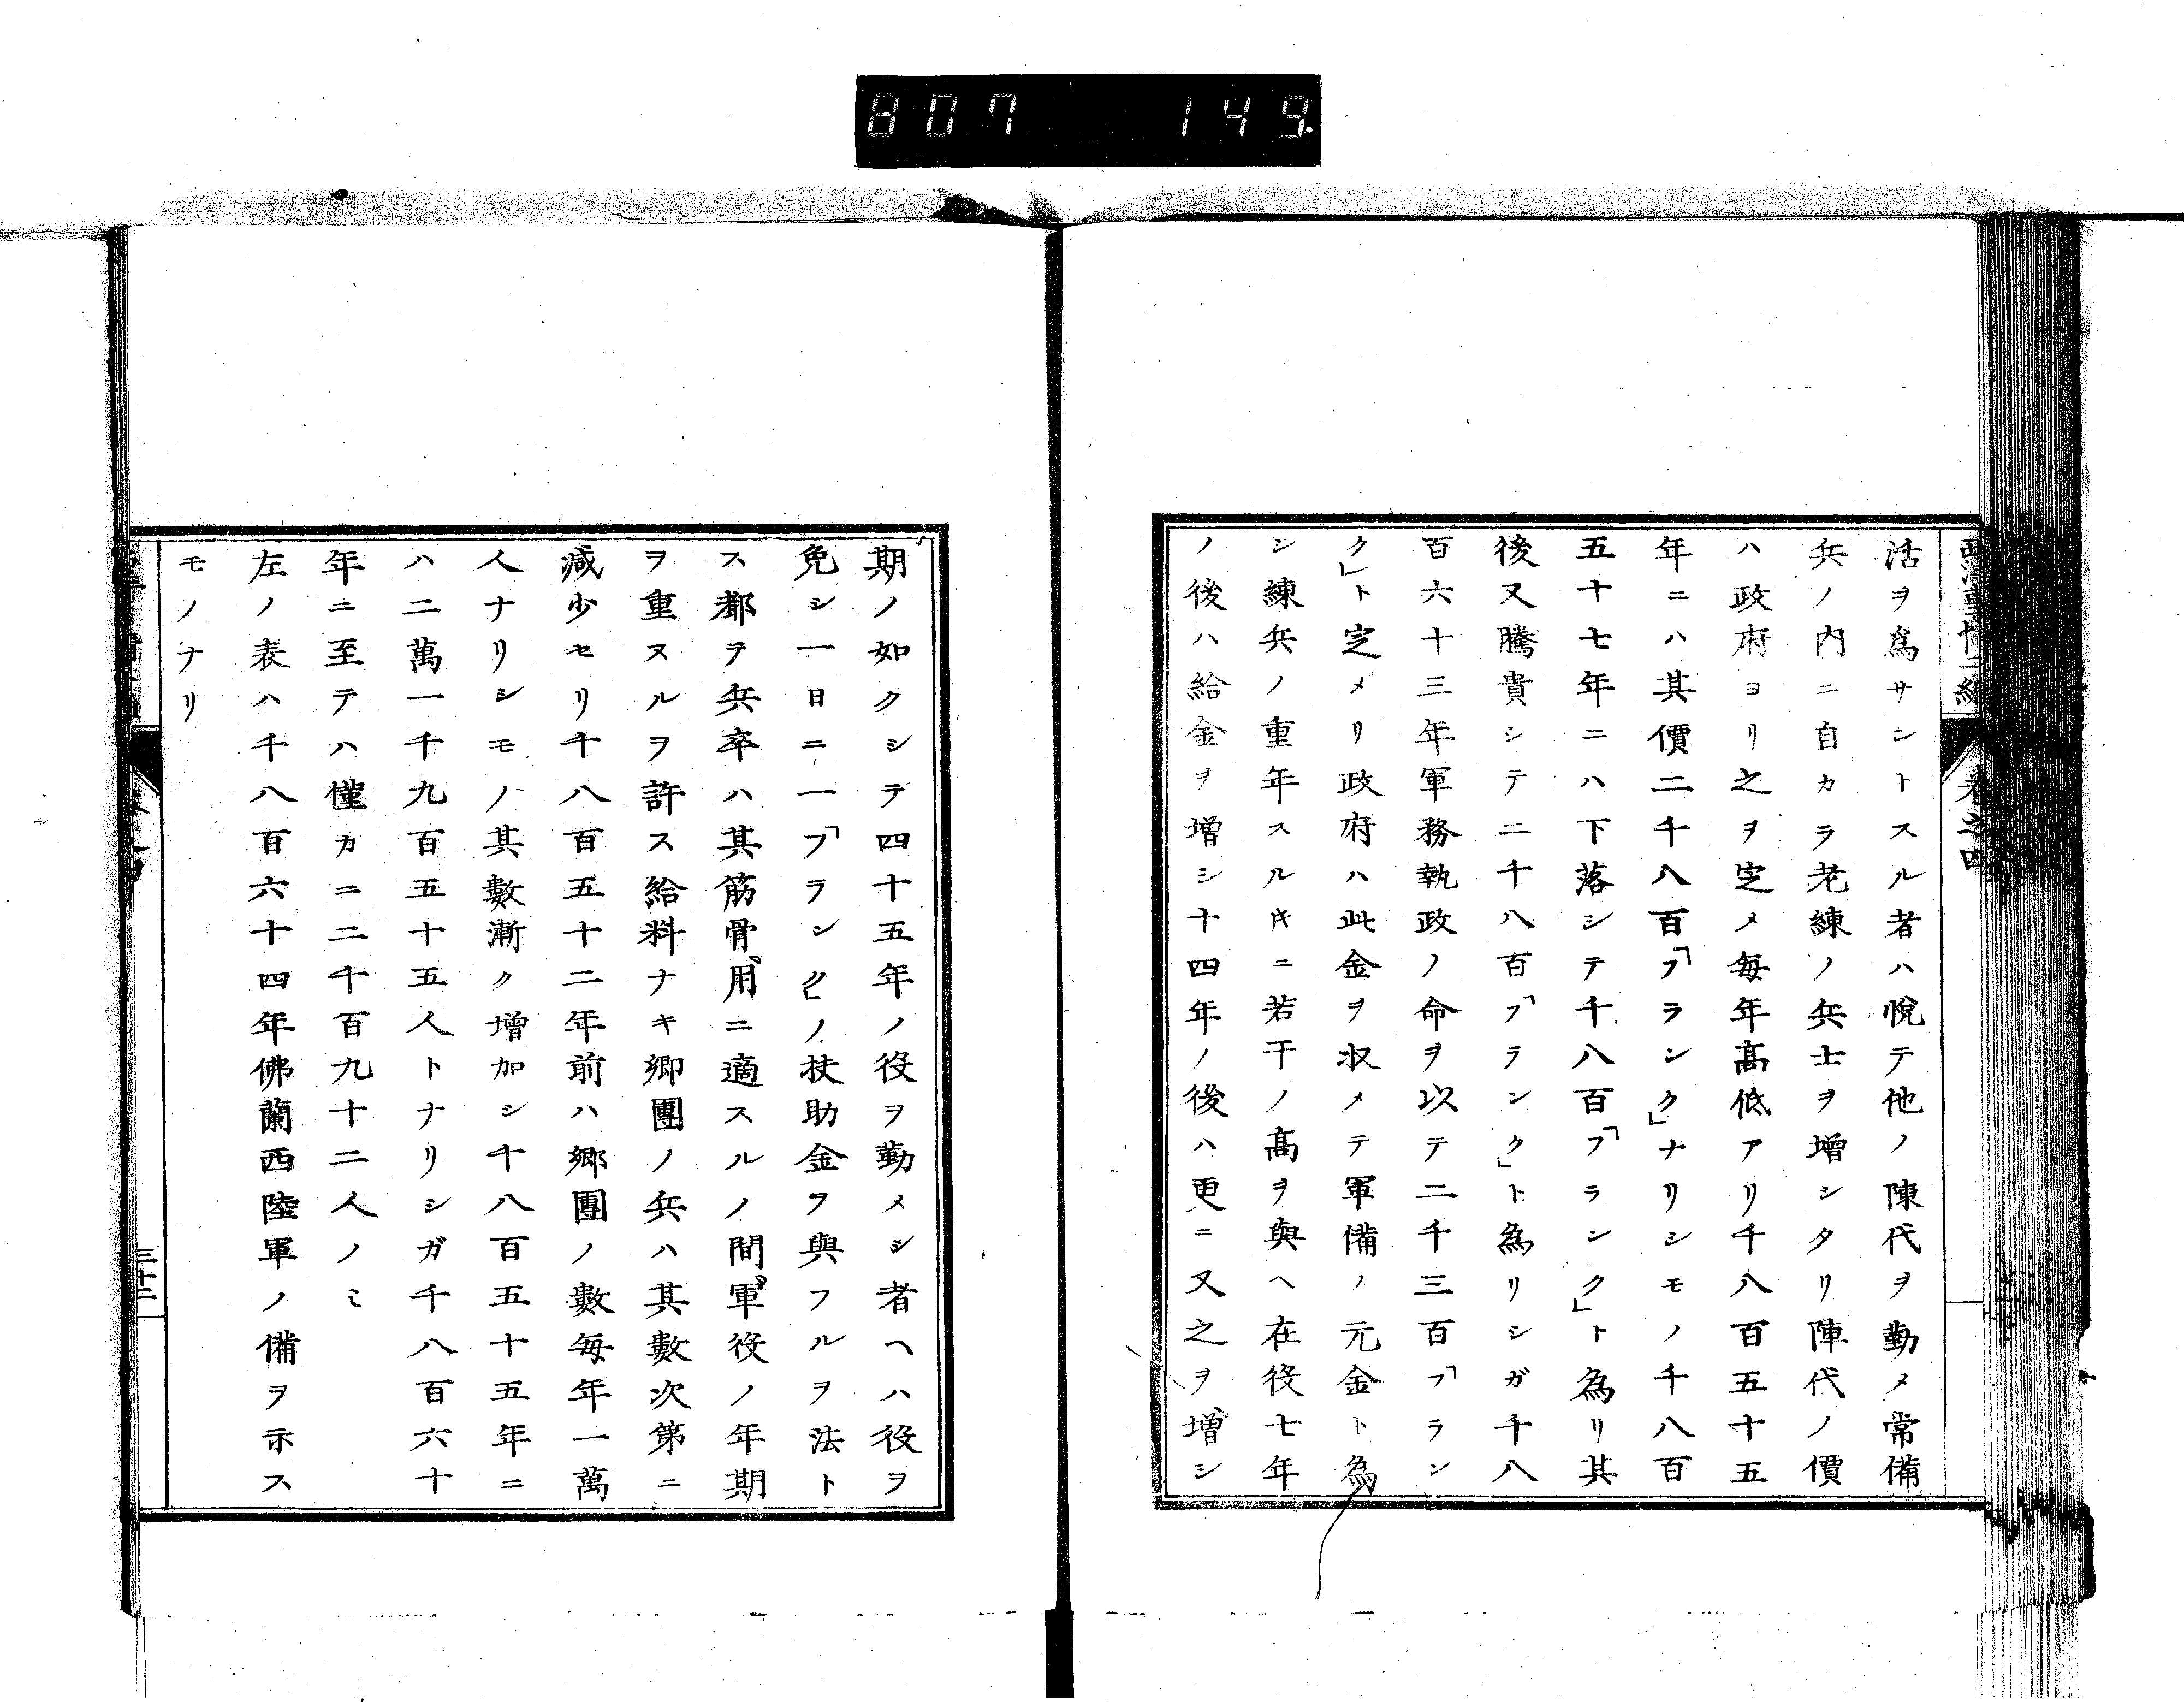 807 149.
活ヲ爲サントスル者ハ悅テ他ノ陳代ヲ勤メ常備
兵ノ内ニ自カラ老練ノ兵士ヲ增シタリ陣代ノ價
ハ政府ヨリ之ヲ定メ每年髙低アリ千八百五十五
年ニハ其價二千八百「フランク」ナリシモノ千八百
五十七年ニハ下落シテ千八百「フランク」ト為リ其
後又騰貴シテ二千八百「フランク」ト為リシガ千八
百六十三年軍務執政ノ命ヲ以テ二千三百「フラン
ク」ト定メリ政府ハ此金ヲ収メテ軍備ノ元金ト為
シ練兵ノ重年スルキニ若干ノ髙ヲ與ヘ在役七年
ノ後ハ給金ヲ增シ十四年ノ後ハ更ニ又之ヲ增シ
期ノ如クシテ四十五年ノ役ヲ勤メシ者ヘハ役ヲ
免シ一日ニ一「フランク」ノ扶助金ヲ與フルヲ法ト
ス都テ兵卒ハ其筋骨用ニ適スルノ間軍役ノ年期
ヲ重ヌルヲ許ス給料ナキ鄉團ノ兵ハ其數次第ニ
減少セリ千八百五十二年前ハ鄉團ノ數每年一萬
人ナリシモノ其數漸ク增加シ千八百五十五年ニ
ハ二萬一千九百五十五人トナリシガ千八百六十
年ニ至テハ僅カニ二千百九十二人ノミ
左ノ表ハ千八百六十四年佛蘭西陸軍ノ備ヲ示ス
モノナリ
三十三